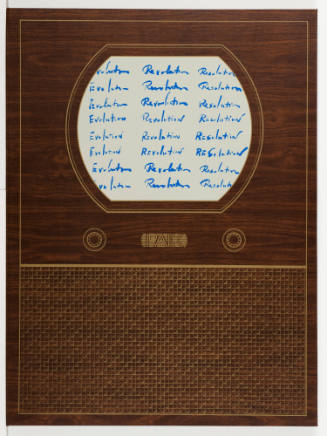 Evolution Revolution Resolution
Evolution Revolution Resolution
Evolution Revolution Resolution
Evolution Revolution Resolution
Evolution Revolution Resolution
Evolution Revolution Resolution
Evolution Revolution Resolution
Evolution Revolution Resolution
PAIK